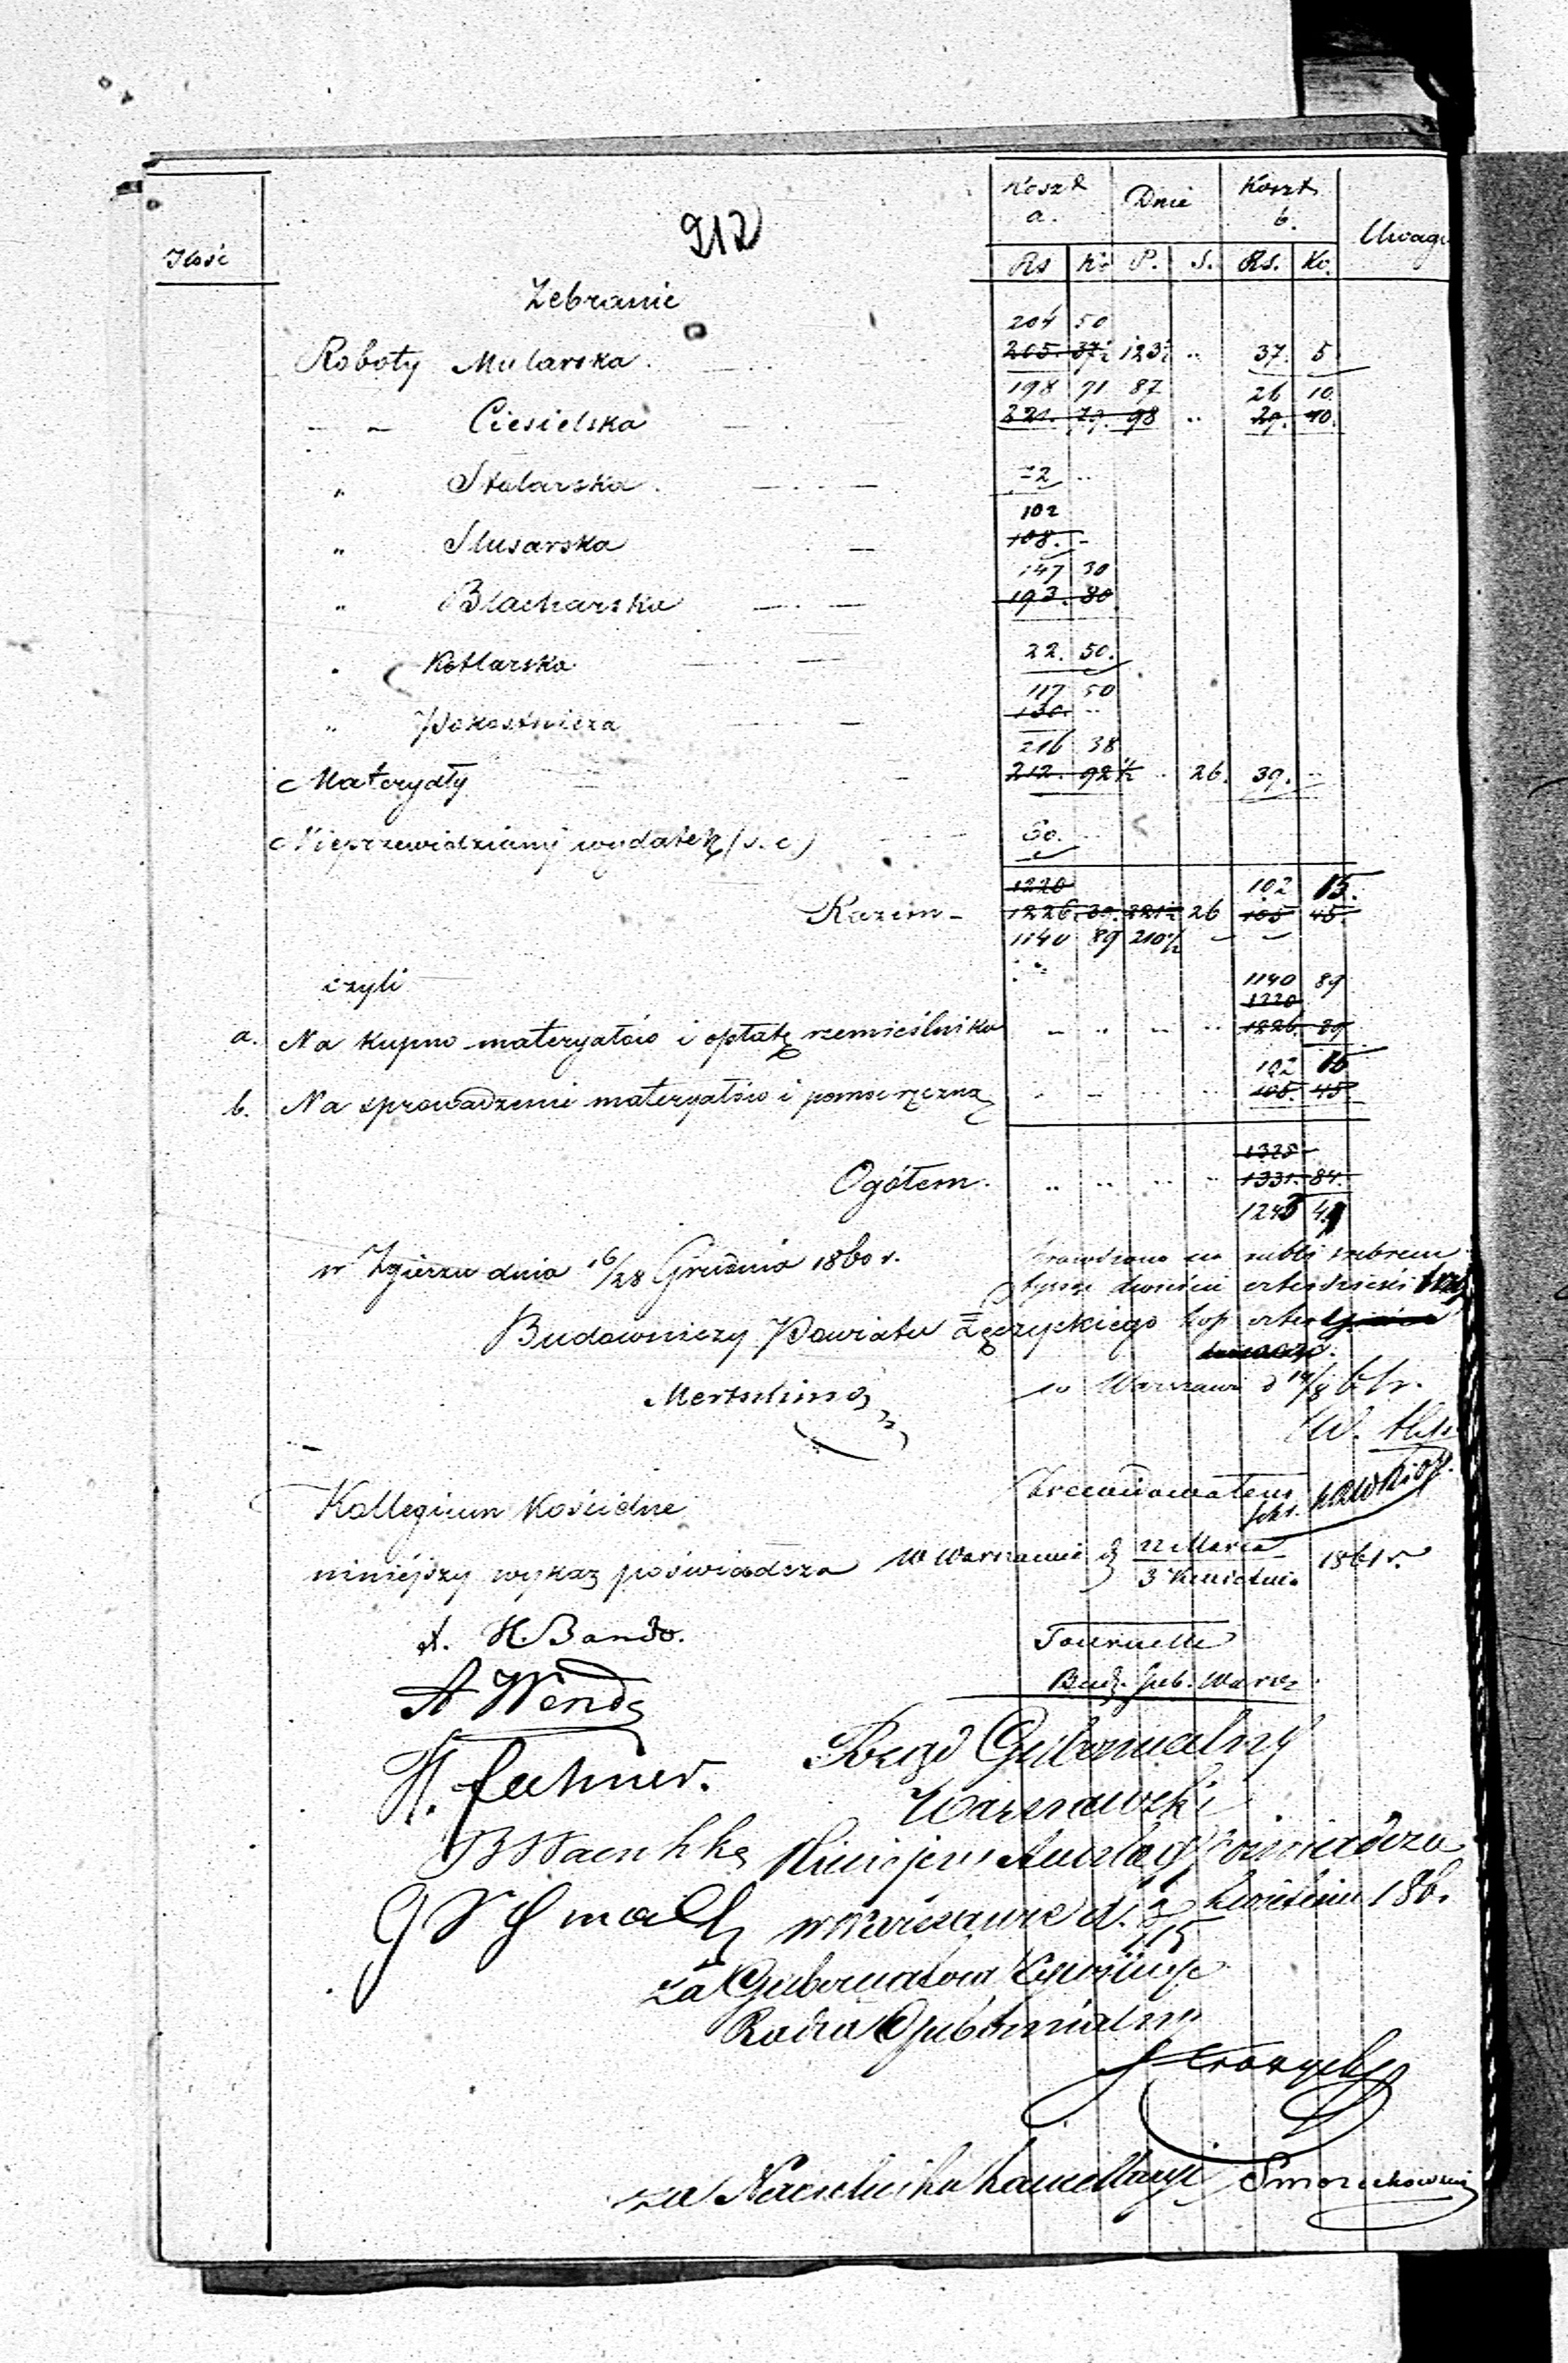 212
Ilość
Koszt a. Dnie Koszt b. Uwagi
Rs Ko P. S. Rs. Ko.
Zebranie
204 50
Roboty Mularska. 205. 37½ 123½ .. 37. 5
198 71 87 26 10.
- - Ciesielska 221. 29. 98 .. 29. 40.
" Stolarska. 72 ..
102
" Slusarska 108. -
147 30
" Blacharska 193. 80
" Kotlarska 22. 50.
117 50
" Pokostnicza 130. ..
216 38
Materyały 212. 92½ .. 26. 39. ..
Nieprzewidziany wydatek (s. c.) 60.
1220 102 15.
Razem - 1226. 39. 221½ 26 105 45.
1140 89 210½
czyli 1140 89
1220
a. Na kupno materyałów i opłatę rzemieślnika - .. - .. 1226. 39
102 15
b. Na sprowadzenie materyałów i pomoc ręczną 105. 45.
1325
Ogółem. .. .. .. .. 1331. 84.
1243 4
w Zgierzu dnia 16/28 Grudnia 1860 r.
Sprawdzono na rubli srebrem
tysiąc dwieście czterdzieści trzy
Budowniczy Powiatu Łęczyckiego kop
Mertsching
w Warszawie d
Zrewidowałem
Kollegium Kościelne
niniejszy wykaz poświadcza
W Warszawie d 22 Marca / 3 Kwietnia 1861 r.
A. H. Bando.
Tournelle
Bud. Gub. Warsz
A Wende
H. Fechner.
Rząd Gubernialny
Warszawski
Niniejszy Anszlag poświadcza
w Warszawie d. 3/15 Kwietnia 186
za Gubernatora Cywilnego
Radca Gubernialny
za Naczelnika Kancellaryi